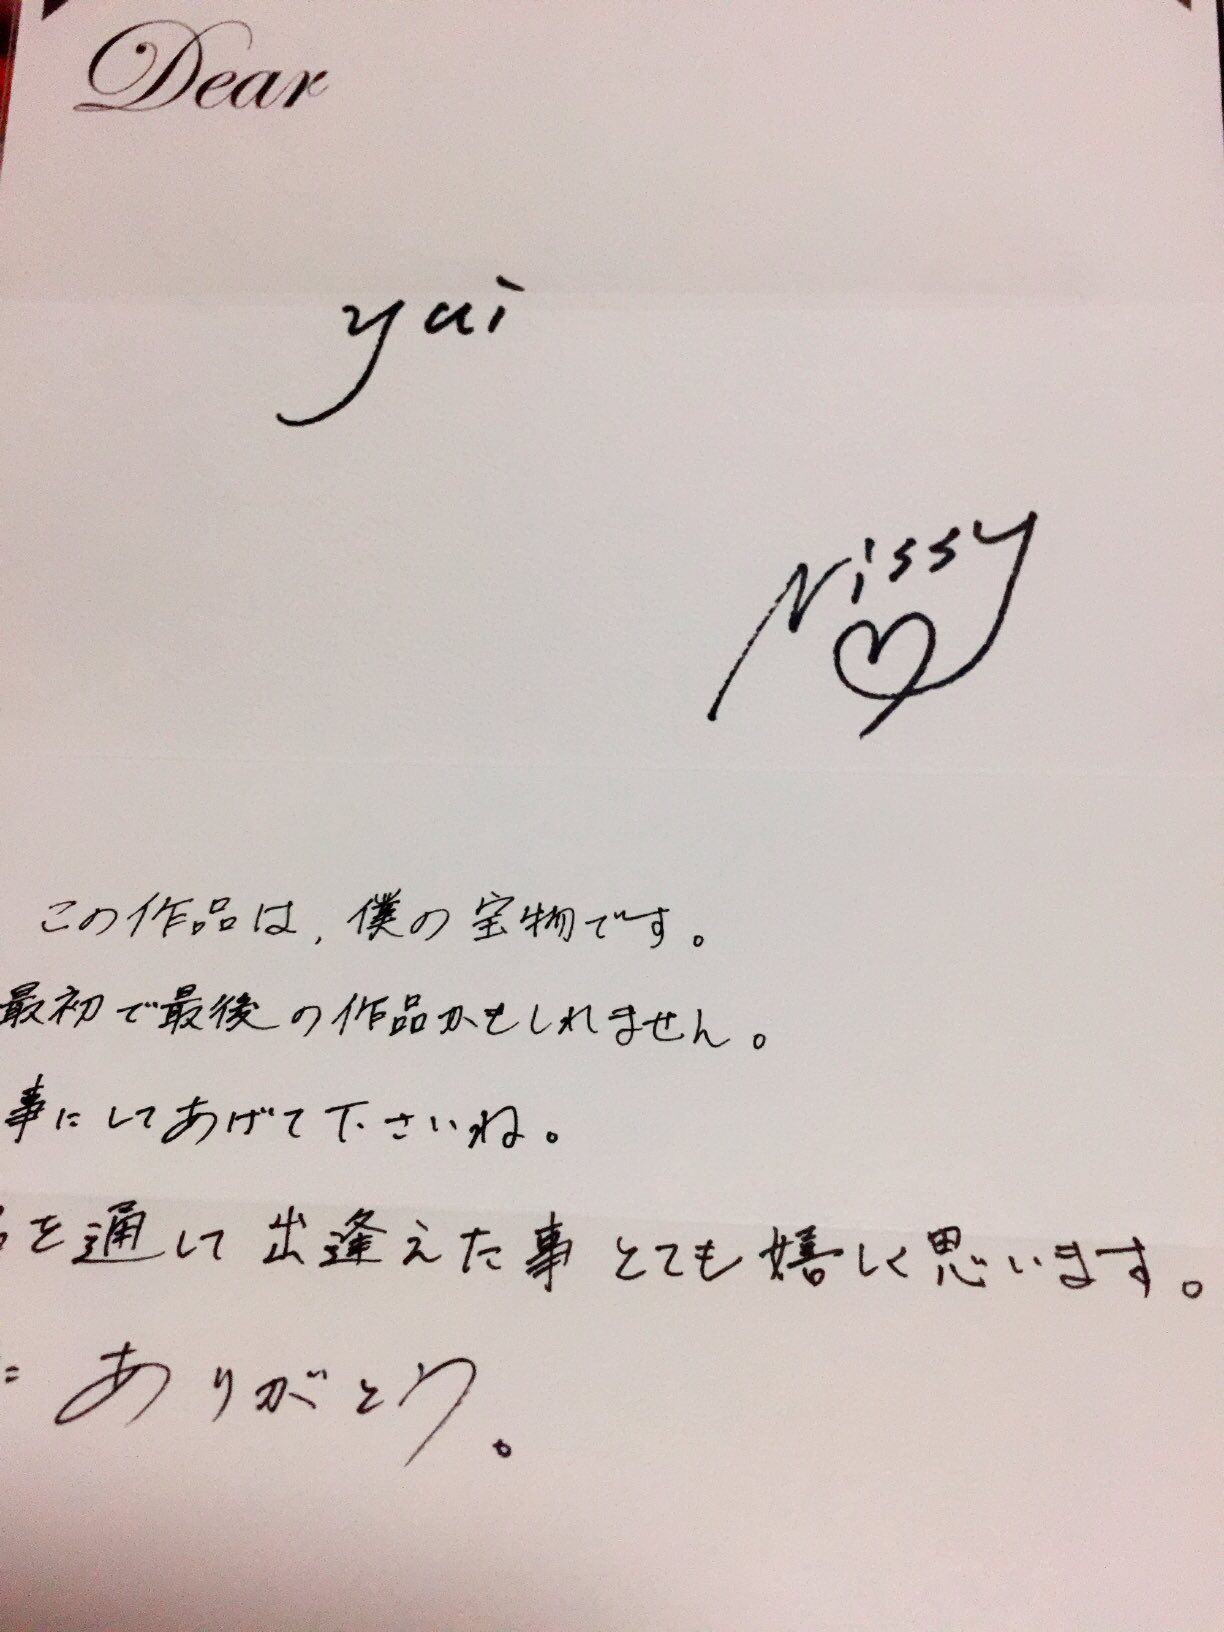 Dear
yui
Nissy
この作品は、僕の宝物です。
最初で最後の作品かもしれません。
事にしてあげて下さいね。
を通して出逢えた事とても嬉しく思います。
ありがとう。